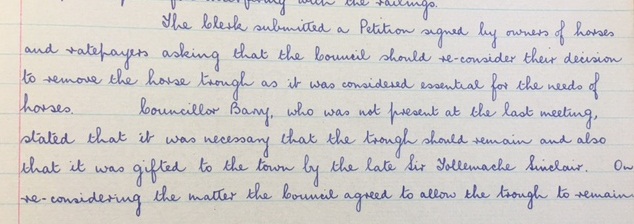 with the railings.
The Clerk submitted a Petition signed by owners of horses
and ratepayers asking that the Council should re-consider their decision
to remove the horse trough as it was considered essential for the needs of
horses. Councillor Barry, who was not present at the last meeting,
stated that it was necessary that the trough should remain and also
that it was gifted to the town by the late Sir Tollemache Sinclair. On
re-considering the matter the Council agreed to allow the trough to remain